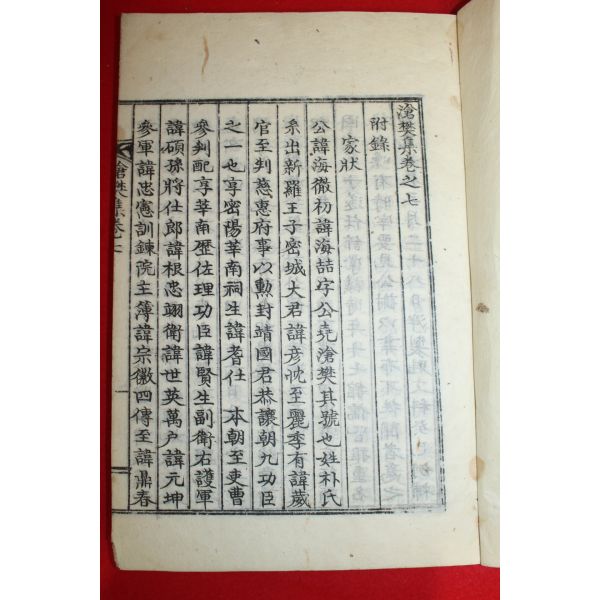 滄樊集卷之七
附錄
家狀
公諱海徹初諱海喆字公堯滄樊其號也姓朴氏
系出新羅王子密城大君諱彦忱至麗季有諱葳
官至判慈惠府事以勳封靖國君恭讓朝九功臣
之一也享密陽莘南祠生諱耆仕 本朝至吏曹
參判配享莘南歷佐理功臣諱賢生副衛右護軍
諱碩孫將仕郎諱根忠翊衛諱世英萬户諱元坤
參軍諱忠憲訓鍊院主簿諱宗徽四傳至諱鼎春
滄樊集卷七